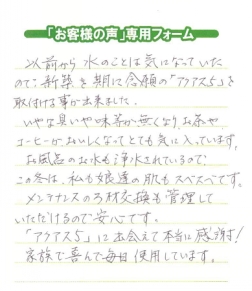 「お客様の声」専用フォーム
以前から水のことは気になっていた
ので、新築を期に念願の「アクアス5」を
取付ける事が出来ました。
いやな臭いや味等が無くなり、お茶や
コーヒーがおいしくなってとても気に入っています。
お風呂のお水も浄水されているので
この冬は、私も娘達の肌もスベスベです。
メンテナンスのろ材交換も管理して
いただけるので安心です。
「アクアス5」に出会えて本当に感謝!
家族で喜んで毎日使用しています。